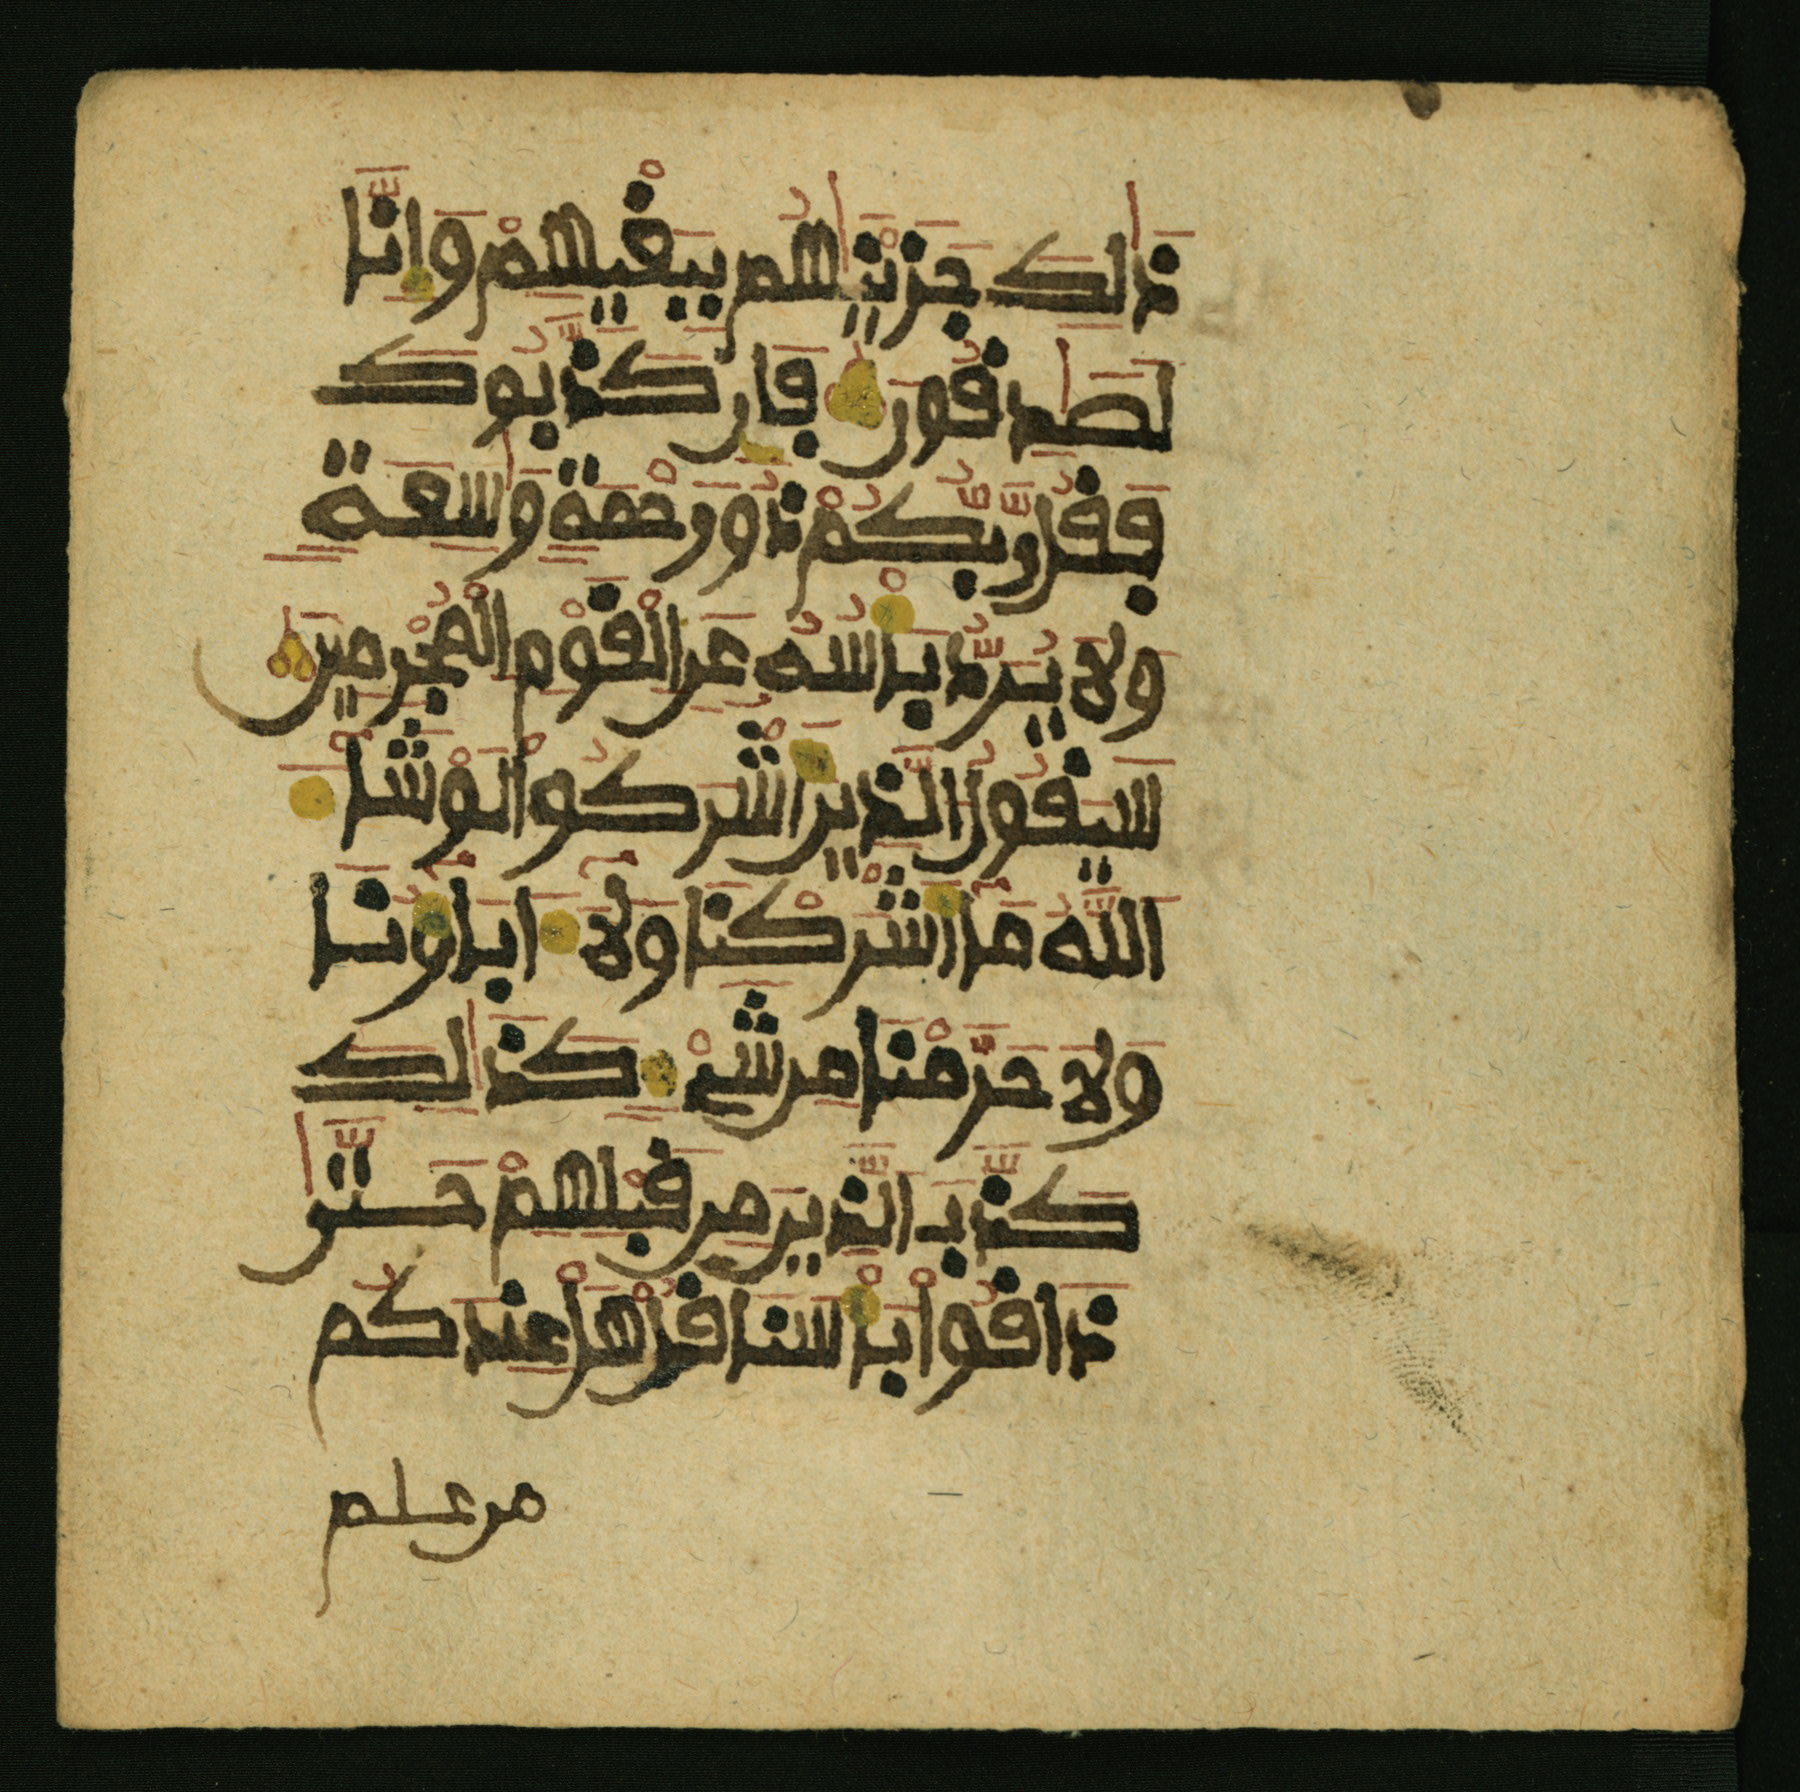 ذَٰلِكَ جَزَيْنَٰهُم بِبَغْيِهِمْ وَإِنَّا
لَصَٰدِقُونَ فَإِن كَذَّبُوكَ
فَقُل رَّبُّكُمْ ذُو رَحْمَةٍ وَٰسِعَةٍ
وَلَا يُرَدُّ بَأْسُهُ عَنِ الْقَوْمِ الْمُجْرِمِينَ
سَيَقُولُ الَّذِينَ أَشْرَكُوا لَوْ شَاءَ
اللَّهُ مَا أَشْرَكْنَا وَلَا ءَابَاؤُنَا
وَلَا حَرَّمْنَا مِن شَيْءٍ كَذَٰلِكَ
كَذَّبَ الَّذِينَ مِن قَبْلِهِمْ حَتَّىٰ
ذَاقُوا بَأْسَنَا قُلْ هَلْ عِندَكُم
من علم